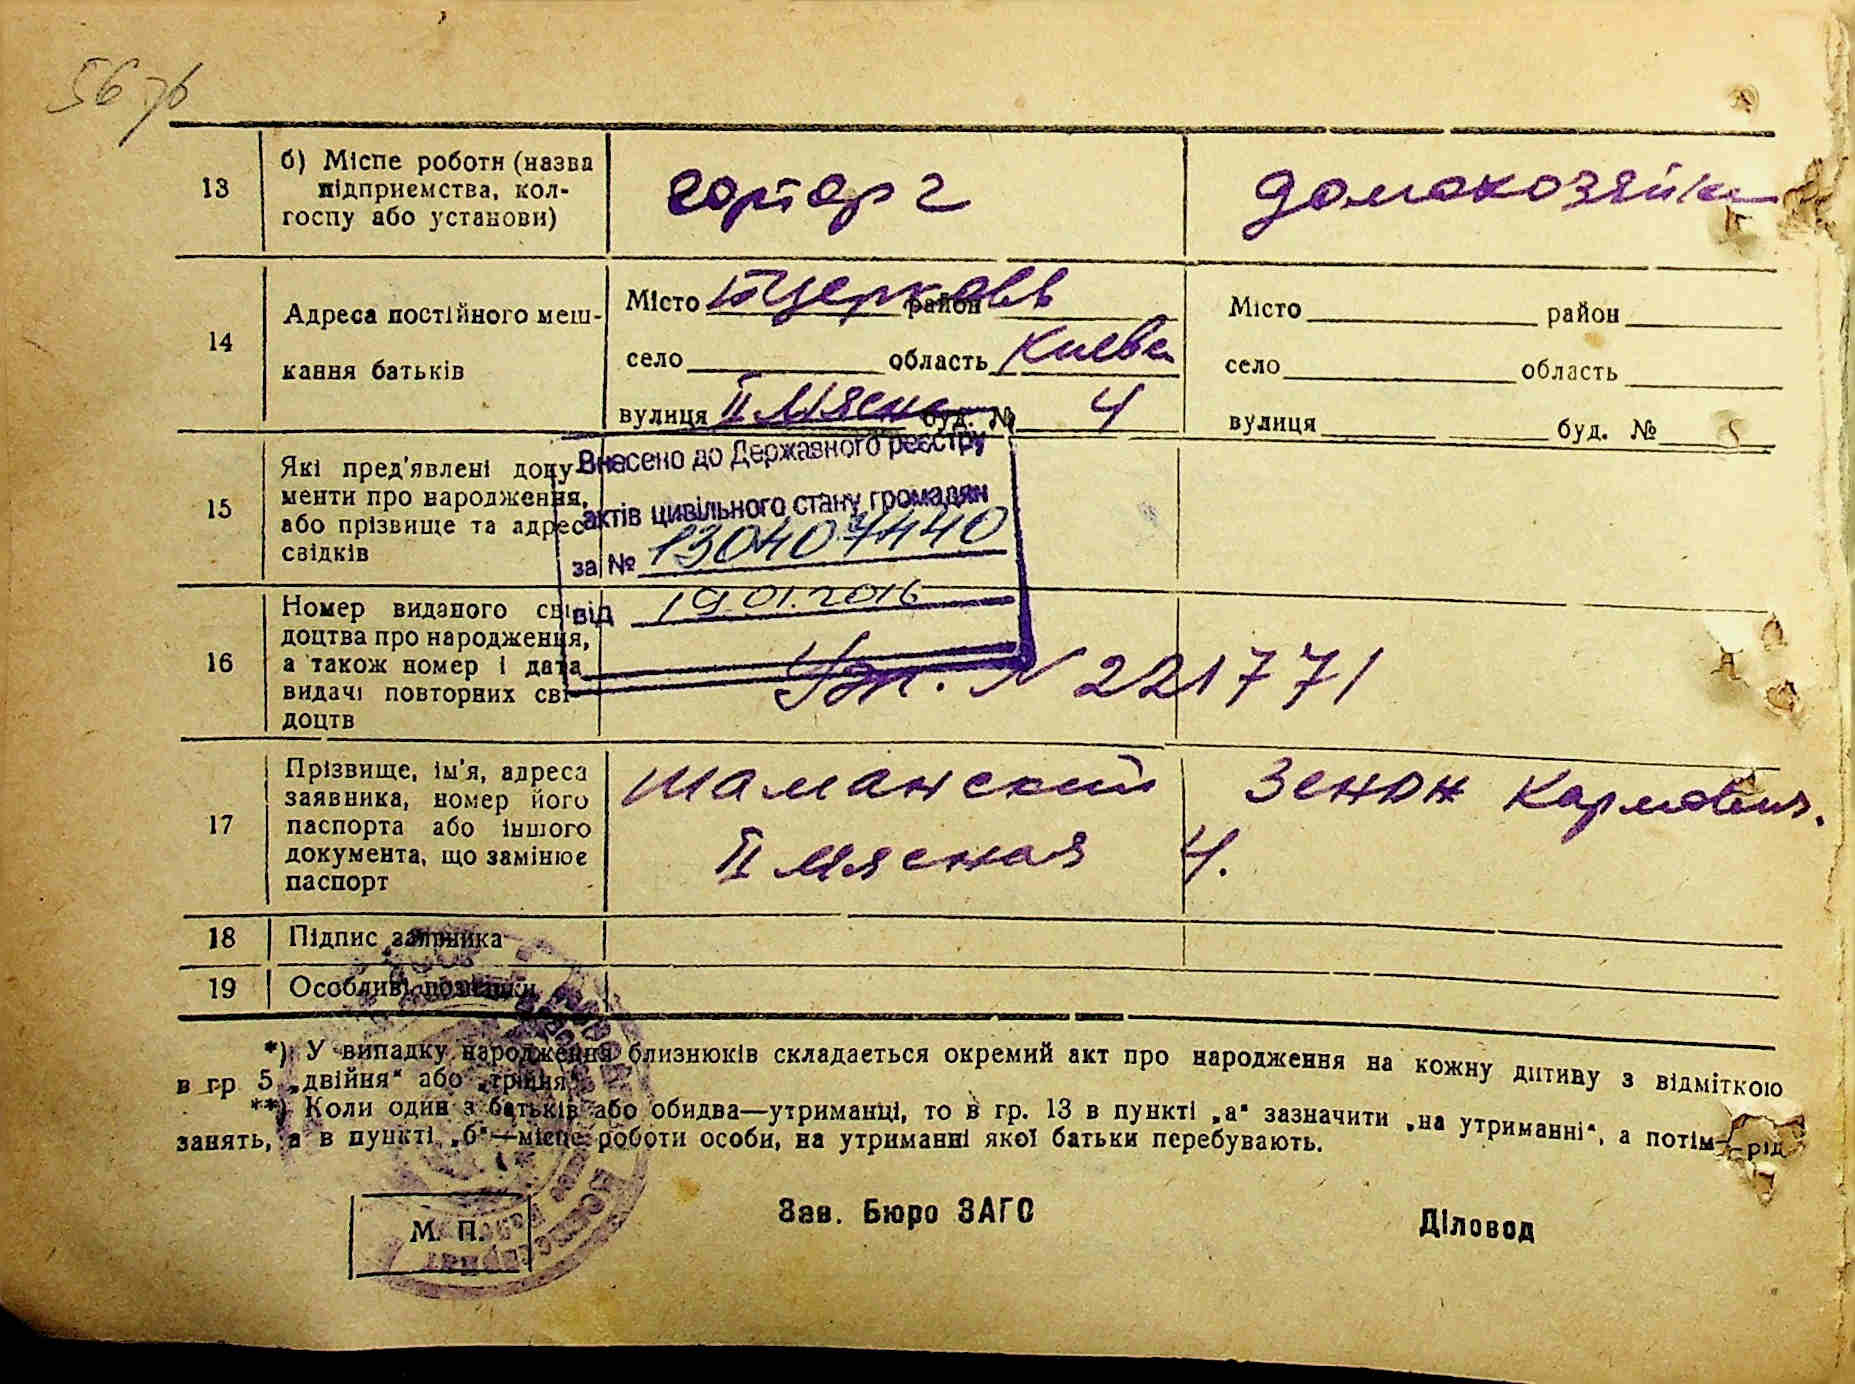 56 зв
13
б) Місце роботи (назва
підприємства, кол-
госпу або установи)
горторг
домохозяйка
14
Адреса постійного меш-
кання батьків
Місто Б Церковь район
село область Киевск
вулиця II Мясная буд. № 4
Місто район
село область
вулиця буд. №
15
Які пред'явлені доку-
менти про народження,
або прізвище та адрес
свідків
Внесено до Державного реєстру
актів цивільного стану громадян
за № 130407440
від 19.01.2016
16
Номер виданого сві-
доцтва про народження,
а також номер і дата
видачі повторних сві-
доцтв
N 221771
17
Прізвище, ім'я, адреса
заявника, номер його
паспорта або іншого
документа, що замінює
паспорт
Шаманский Зенон Карлович.
II Мясная 4.
18
Підпис заявника
19
Особливі помітки
*) У випадку народження близнюків складається окремий акт про народження на кожну дитину з відміткою
в гр 5 „двійня“ або „трійня“.
**) Коли один з батьків або обидва—утриманці, то в гр. 13 в пункті „а“ зазначити „на утриманні“, а потім—рід
занять, а в пункті „б“—місце роботи особи, на утриманні якої батьки перебувають.
М. П.
Зав. Бюро ЗАГС
Діловод